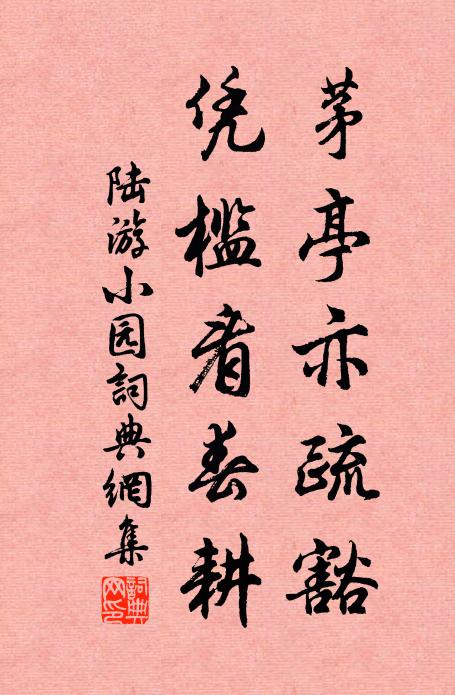 茅亭亦疏豁
凭槛看春耕
陆游小园詞典網集
詞典网印